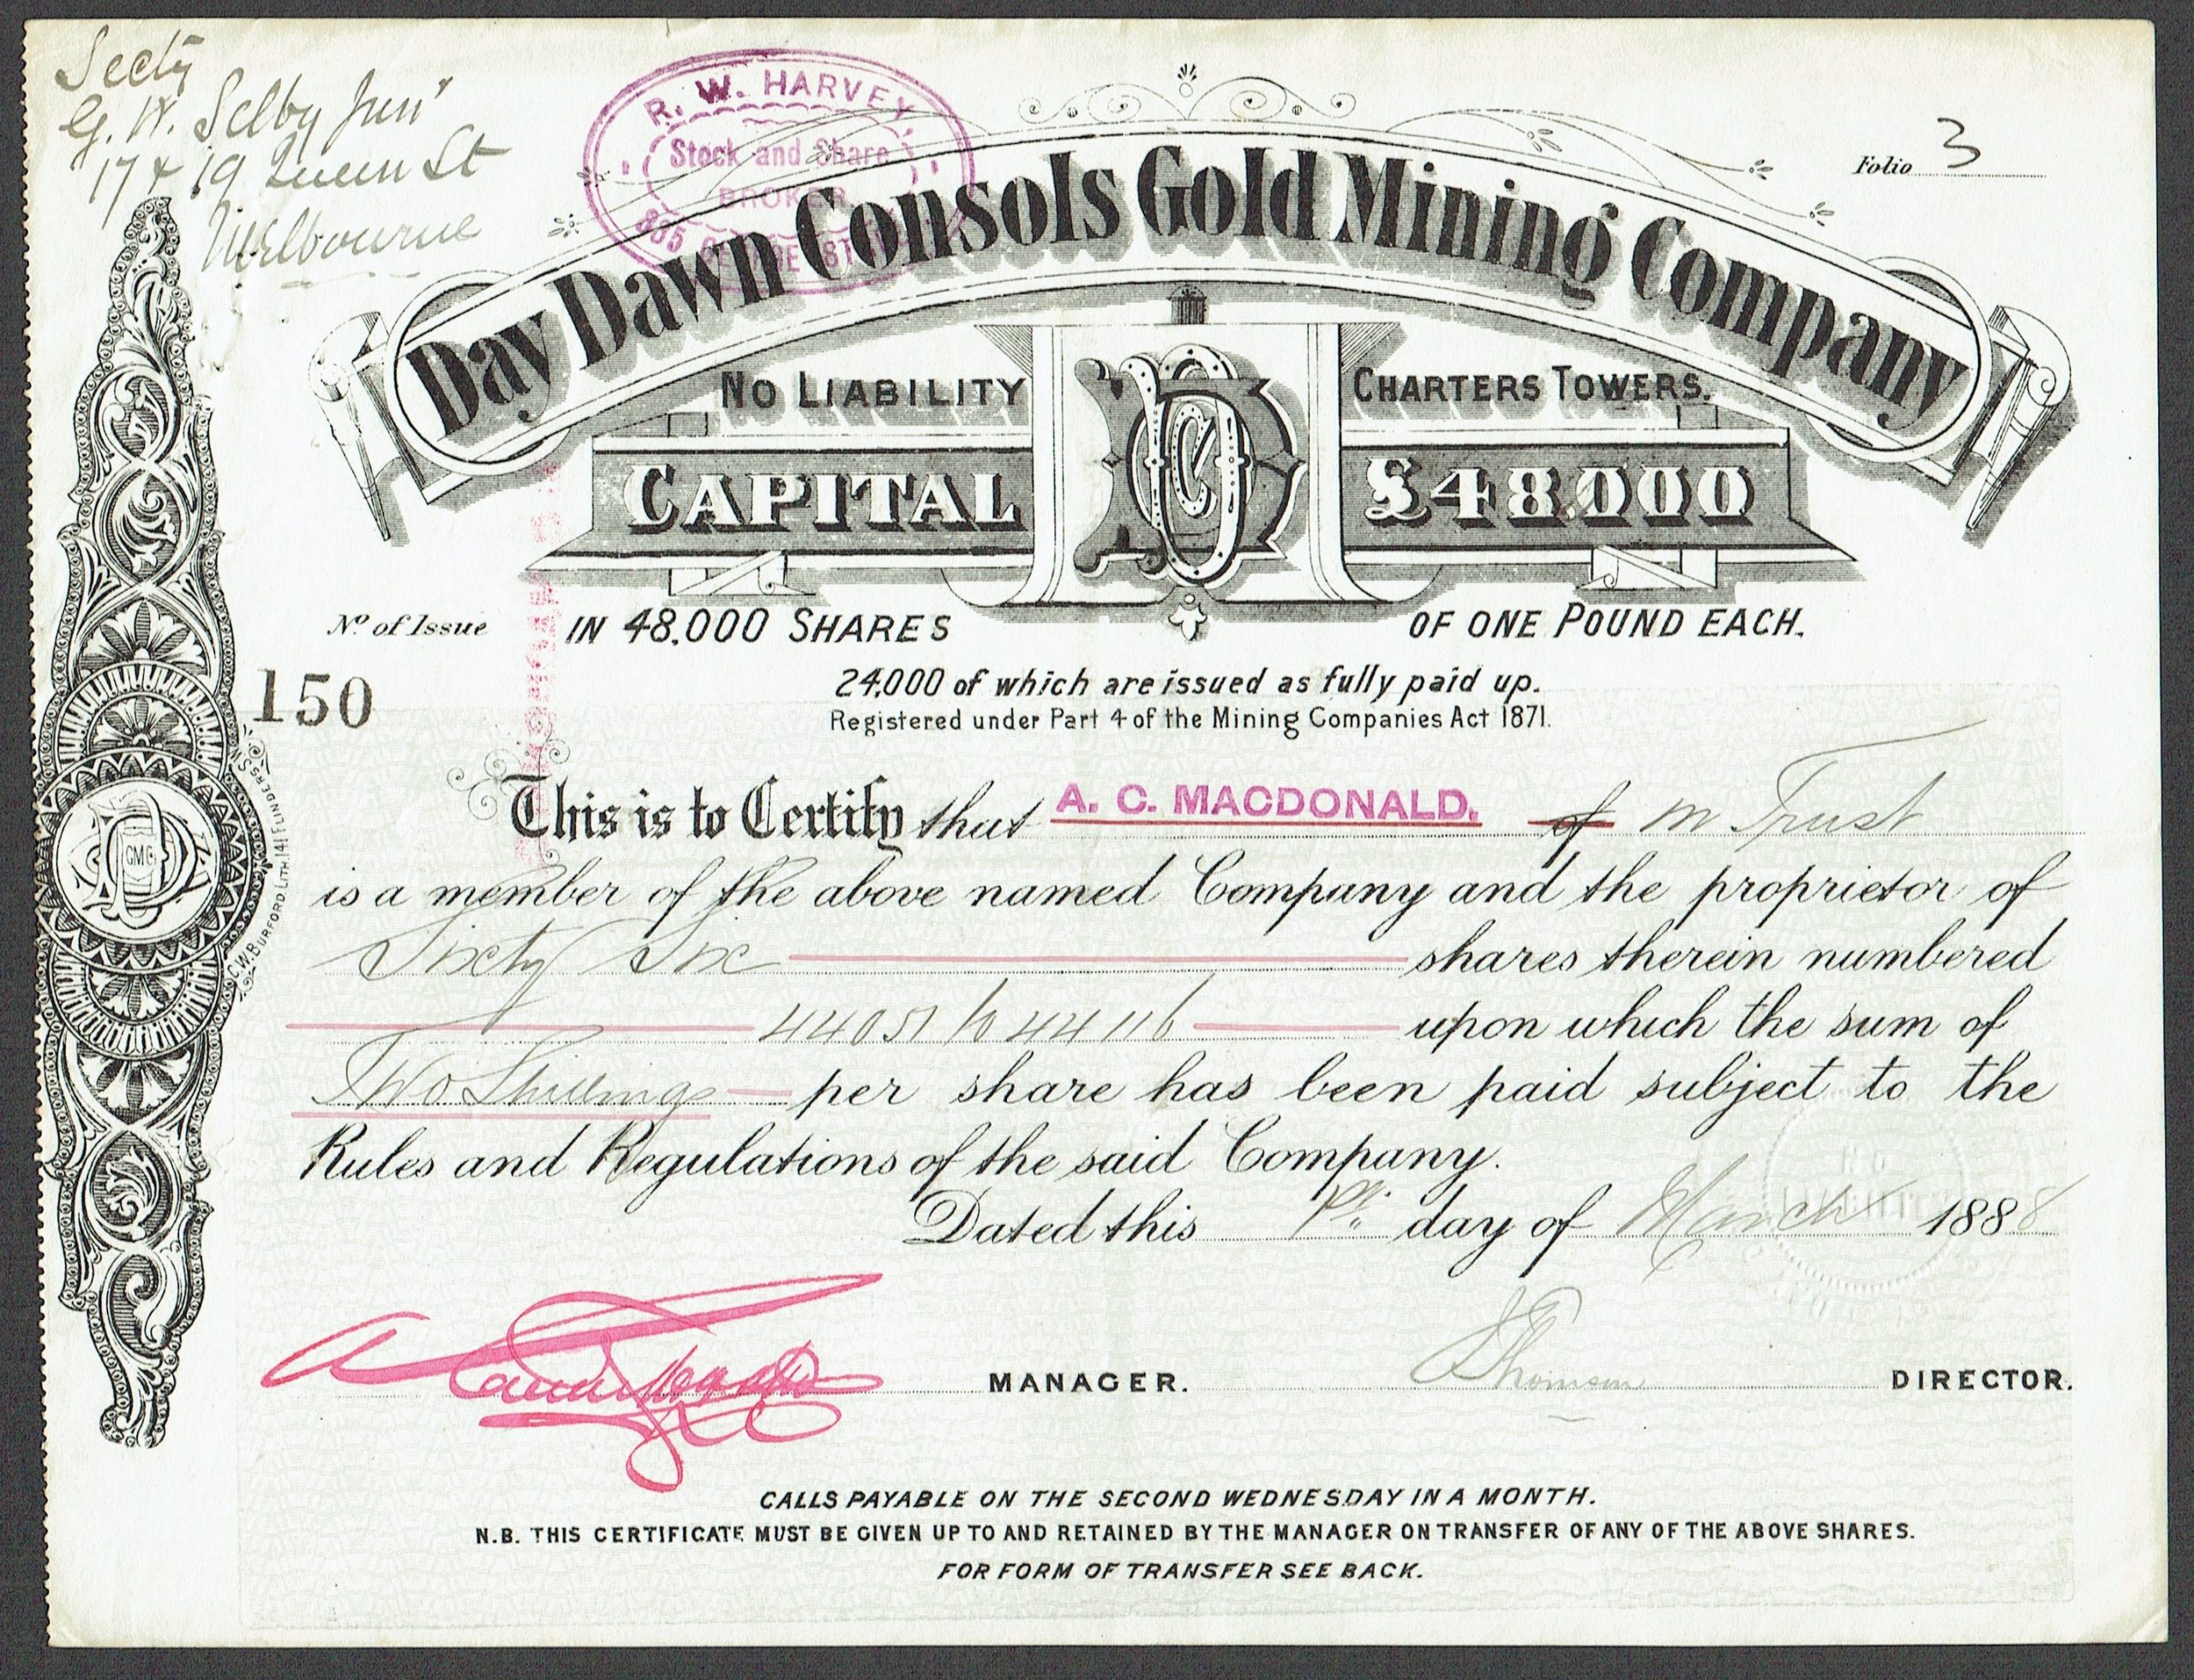 Secty
G. W. Selby Junr
17 & 19 Queen St
Melbourne
R. W. HARVEY
Stock and Share
BROKER
Folio 3
Day Dawn Consols Gold Mining Company
NO LIABILITY
CHARTERS TOWERS.
CAPITAL
£48,000
No of Issue
IN 48,000 SHARES
OF ONE POUND EACH.
150
24,000 of which are issued as fully paid up.
Registered under Part 4 of the Mining Companies Act 1871.
This is to Certify that A. C. MACDONALD. of in Trust
is a member of the above named Company and the proprietor of
Sixty Six shares therein numbered
44051 to 44116 upon which the sum of
Two Shillings per share has been paid subject to the
Rules and Regulations of the said Company.
Dated this 1st day of March 1888
MANAGER.
Thomson
DIRECTOR.
CALLS PAYABLE ON THE SECOND WEDNESDAY IN A MONTH.
N.B. THIS CERTIFICATE MUST BE GIVEN UP TO AND RETAINED BY THE MANAGER ON TRANSFER OF ANY OF THE ABOVE SHARES.
FOR FORM OF TRANSFER SEE BACK.
GMC
C.W. BURFORD LITH 141 FLINDERS ST